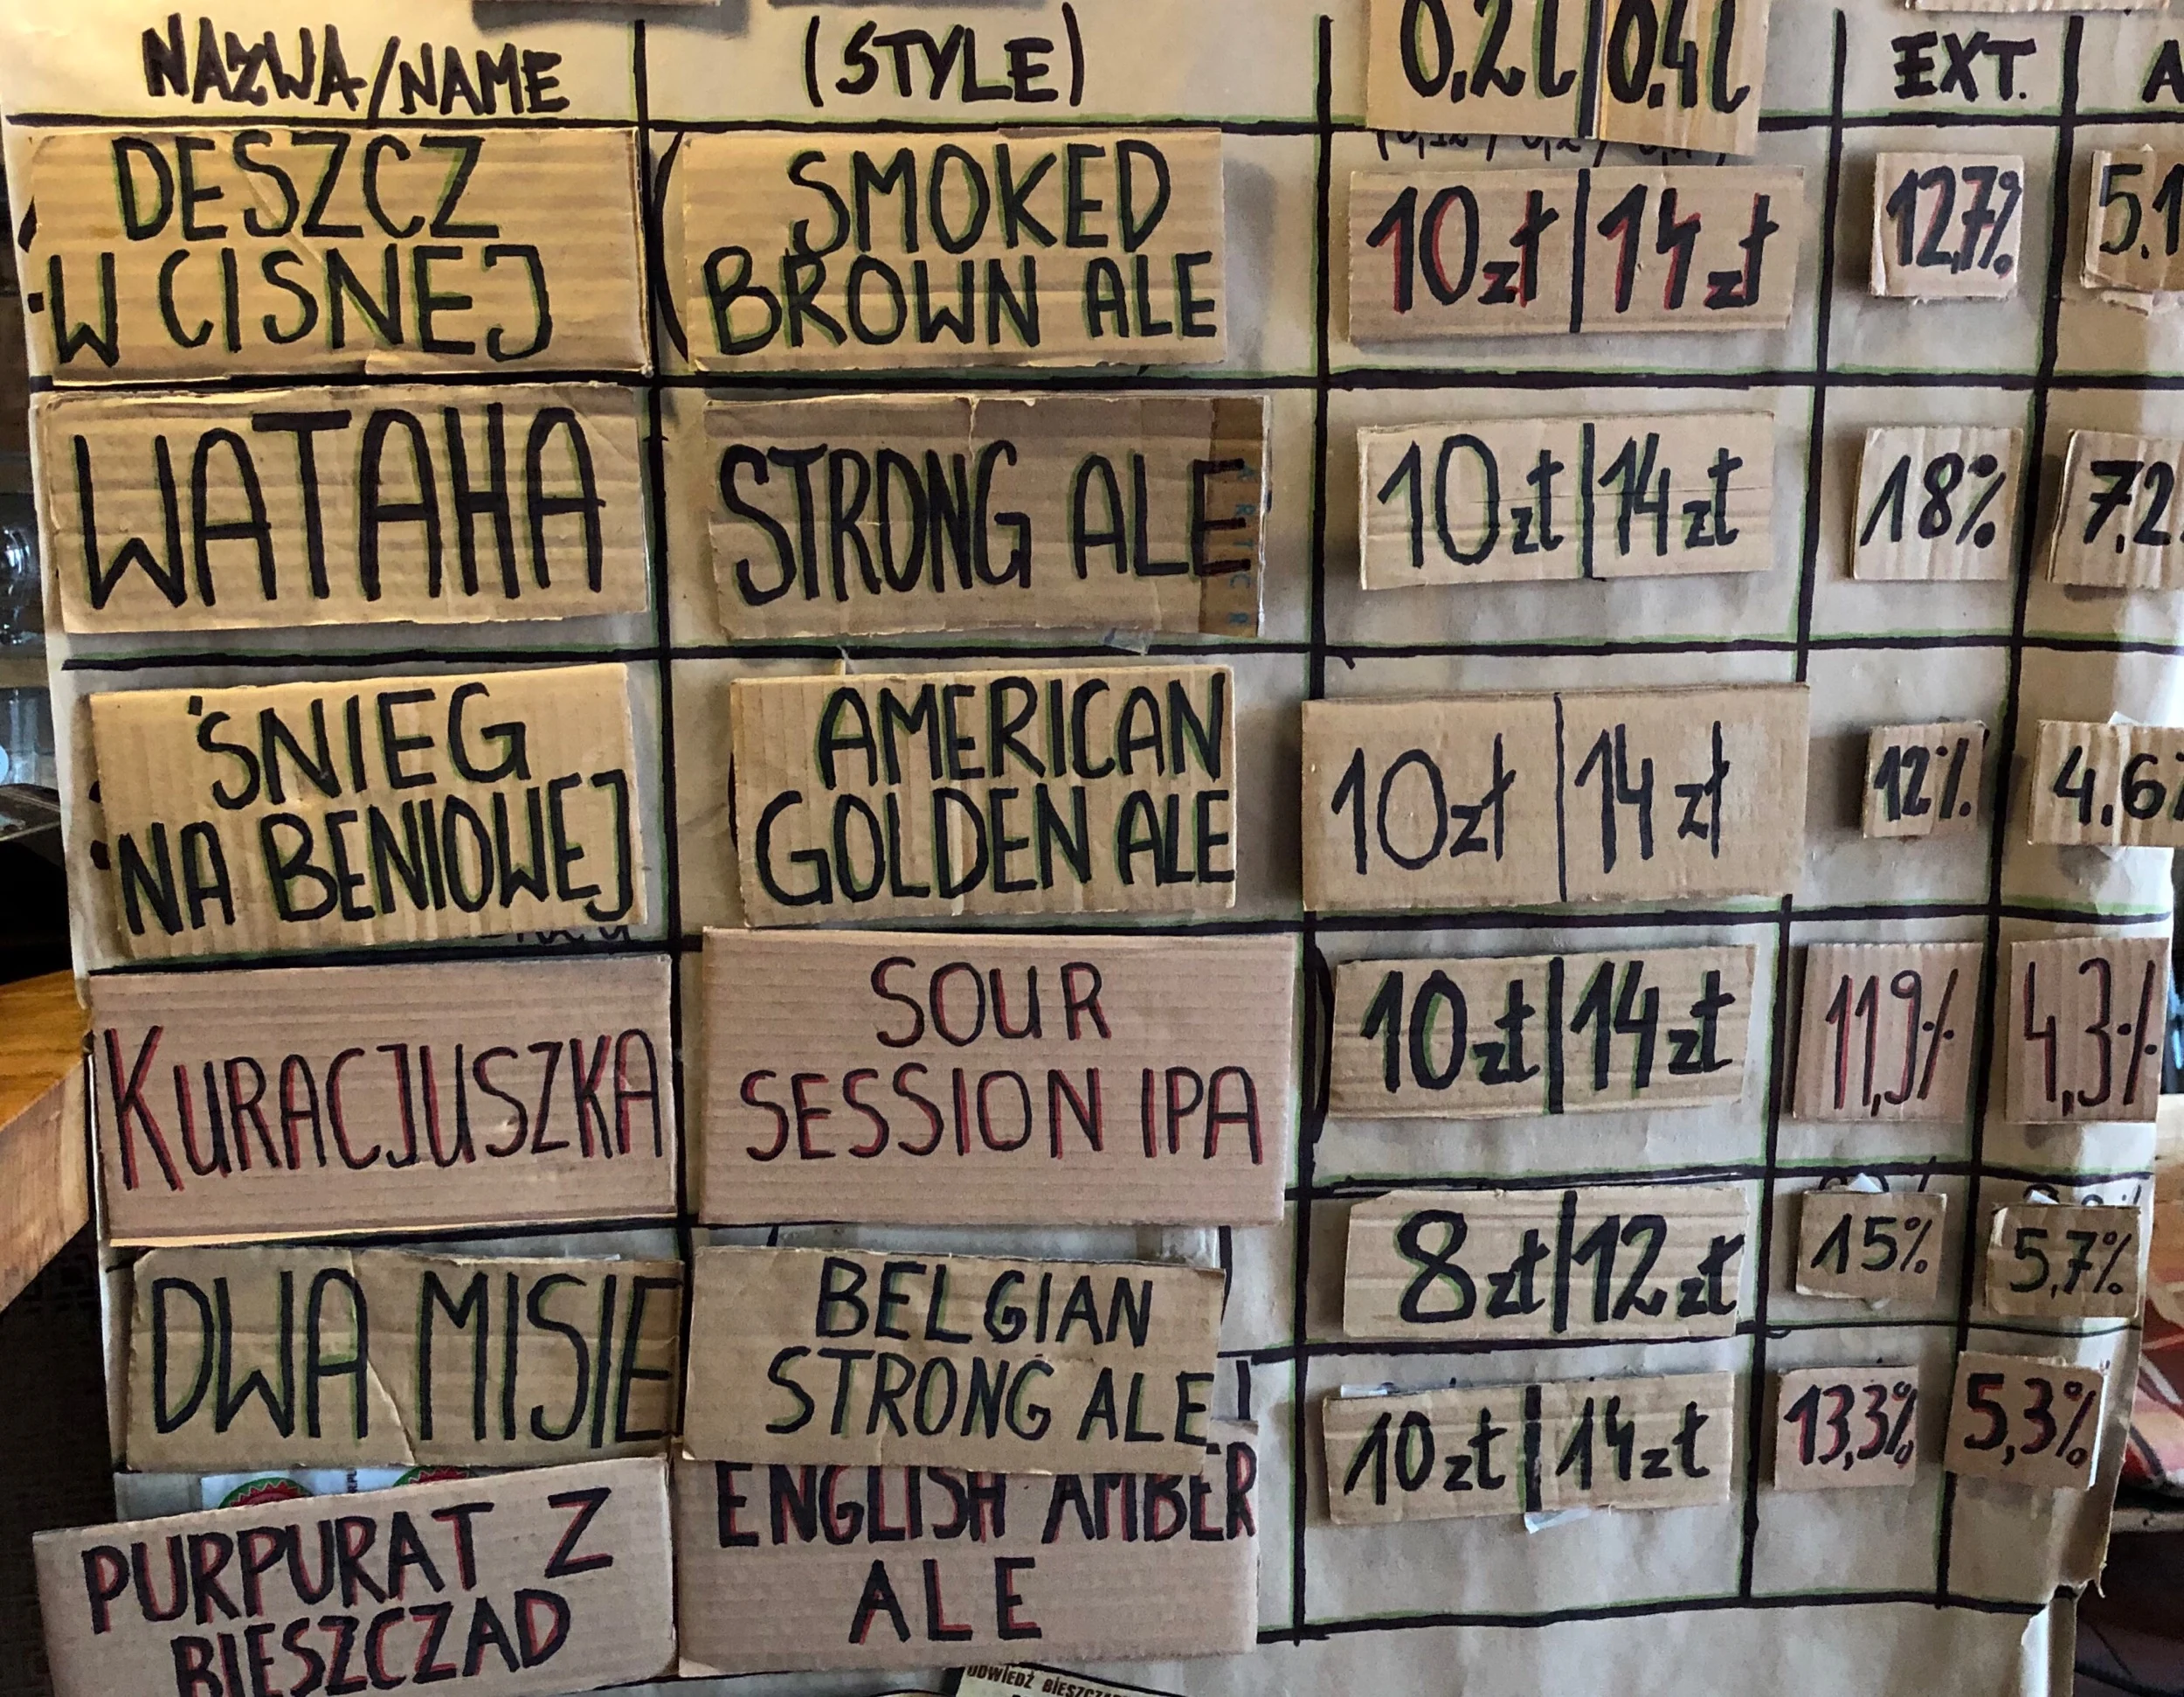 NAZWA/NAME (STYLE) 0,2l|0,4l EXT.
DESZCZ
W CISNEJ
SMOKED
BROWN ALE
10zł|14zł
12,7%
5.1
WATAHA
STRONG ALE
10zł|14zł
18%
7,2
ŚNIEG
NA BENIOWEJ
AMERICAN
GOLDEN ALE
10zł|14zł
12%
4,6
KURACJUSZKA
SOUR
SESSION IPA
10zł|14zł
11,9%
4,3%
DWA MISIE
BELGIAN
STRONG ALE
8zł|12zł
15%
5,7%
PURPURAT Z
BIESZCZAD
ENGLISH AMBER
ALE
10zł|14zł
13,3%
5,3%
ODWIEDŹ